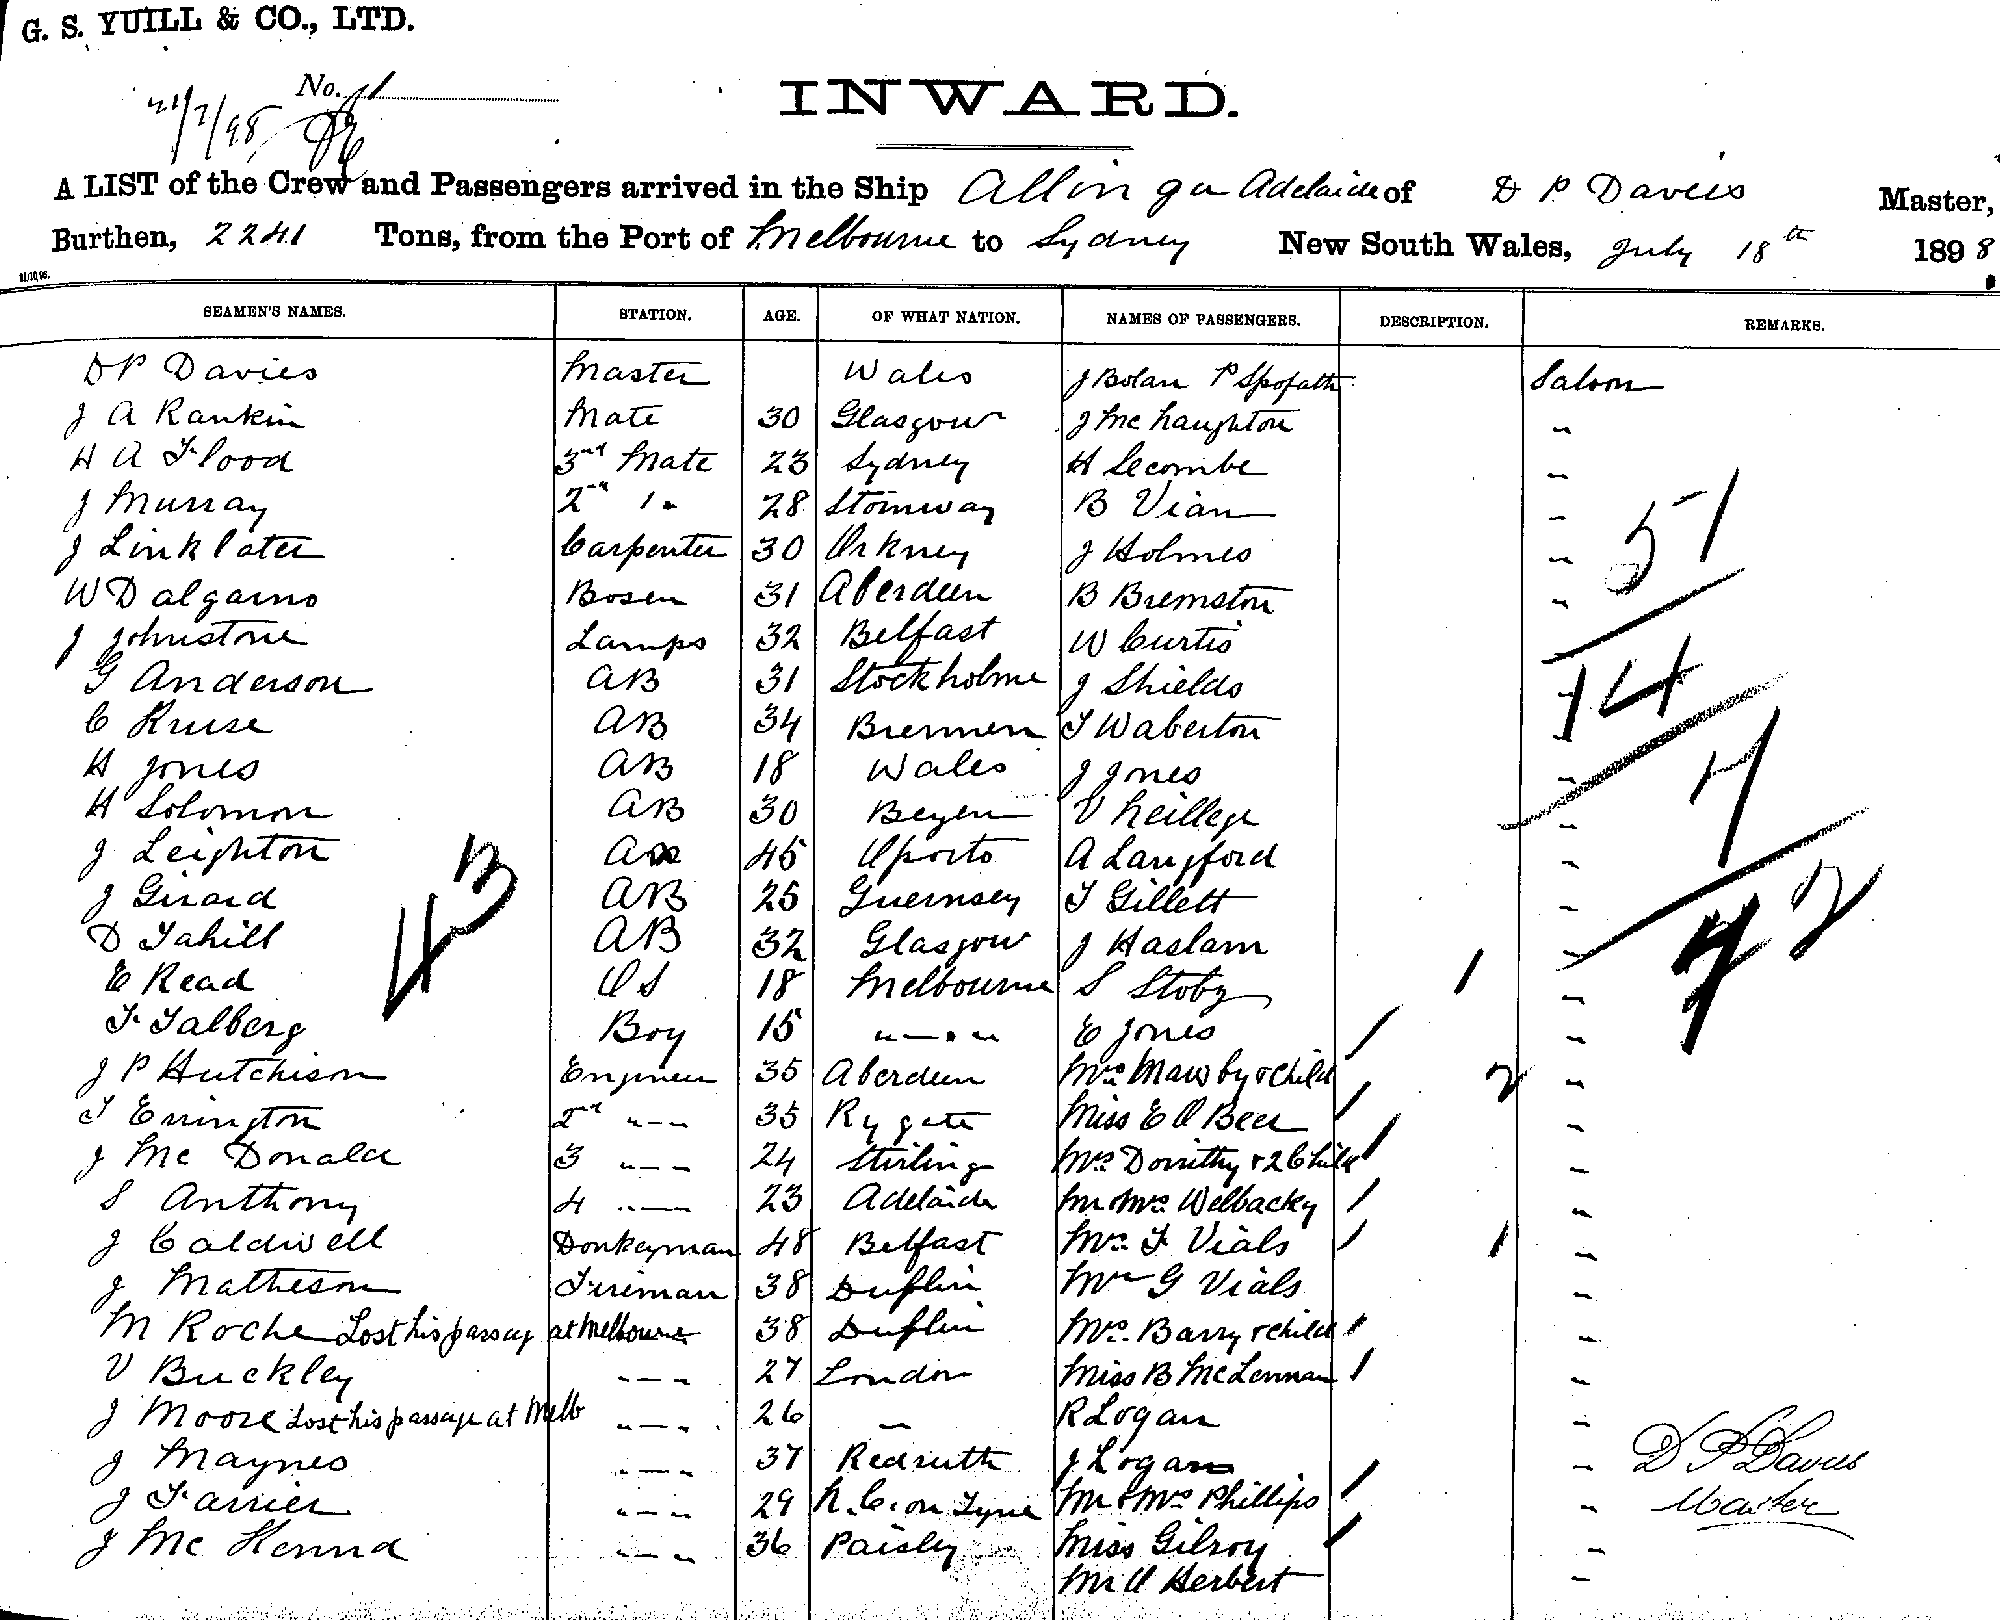 G. S. YUILL & CO., LTD.
No. 11
21/7/98
INWARD.
A LIST of the Crew and Passengers arrived in the Ship Allinga Adelaide of D P Davies Master,
Burthen, 2241 Tons, from the Port of Melbourne to Sydney New South Wales, July 18th 1898
SEAMEN'S NAMES. STATION. AGE. OF WHAT NATION. NAMES OF PASSENGERS. DESCRIPTION. REMARKS.
D P Davies Master Wales J Bolan P Spofath Saloon
J A Rankin Mate 30 Glasgow J McNaughton "
H A Flood 3rd Mate 23 Sydney H Secombe "
J Murray 2nd " 28 Stornway B Vian "
J Linklater Carpenter 30 Orkney J Holmes "
W Dalgarno Bosen 31 Aberdeen B Bremston "
J Johnstone Lamps 32 Belfast W Curtis
G Anderson AB 31 Stockholme J Shields
C Kruse AB 34 Bremmen T Waberton
H Jones AB 18 Wales J Jones "
H Solomon AB 30 Beyen V Neillege "
J Leighton AB 45 Oporto A Langford "
J Girard AB 25 Guernsey T Gillett "
D Tahill AB 32 Glasgow J Haslam "
E Read OS 18 Melbourne S Stoby 1 "
F Talberg Boy 15 " - " - " E Jones / "
J P Hutchison Engineer 35 Aberdeen Mrs Mawby & Child 2 "
T Errington 2nd " - " 35 Rygate Miss E O Beer / "
J Mc Donald 3 " - " 24 Stirling Mrs Dorrithy & 2 Child / "
S Anthony 4 " - 23 Adelaide Mr & Mrs Welbacky / "
J Caldwell Donkeyman 48 Belfast Mrs F Vials / 1 "
J Matheson Fireman 38 Dublin Mr G Vials "
M Roche Lost his passag at Melbourne 38 Dublin Mrs. Barry & Child / "
V Buckley " - " 27 London Miss B McLennan / "
J Moore Lost his passage at Melb " - " 26 " R Logan "
J Maynes " - " 37 Redruth J Logan "
J Farrier " - " 29 N. C. on Tyne Mr & Mrs Phillips / "
J Mc Kenna " - " 36 Paisley Miss Gilroy / "
Mr A Herbert "
43
51
14
7
72
D P Davies
Master